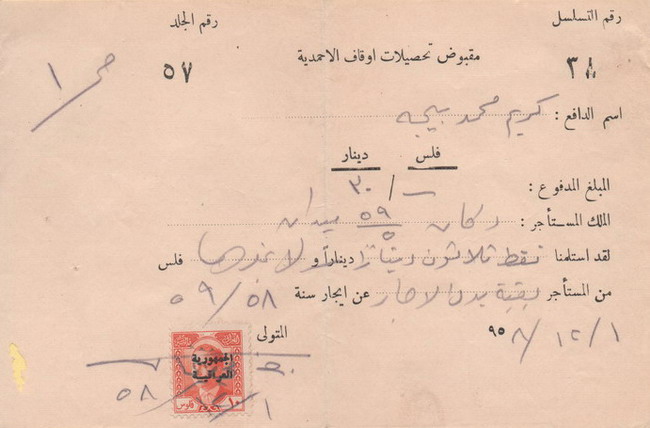 رقم التسلسل رقم الجلد
٣٨ مقبوض تحصيلات اوقاف الاحمدية ٥٧
١
اسم الدافع : كريم محمد
فلس دينار
المبلغ المدفوع : ـ/٣٠
الملك المستأجر : دكان ٥٩/٥ ميدان
لقد استلمنا فقط ثلاثون ديناراً ديناراً و لا غيرها فلس
من المستأجر بقية بدل الايجار عن ايجار سنة ٥٩/٥٨
٩٥٨/١٢/١ المتولى
الجمهورية
العراقية
١٠ فلوس
٥٨/١٢/١